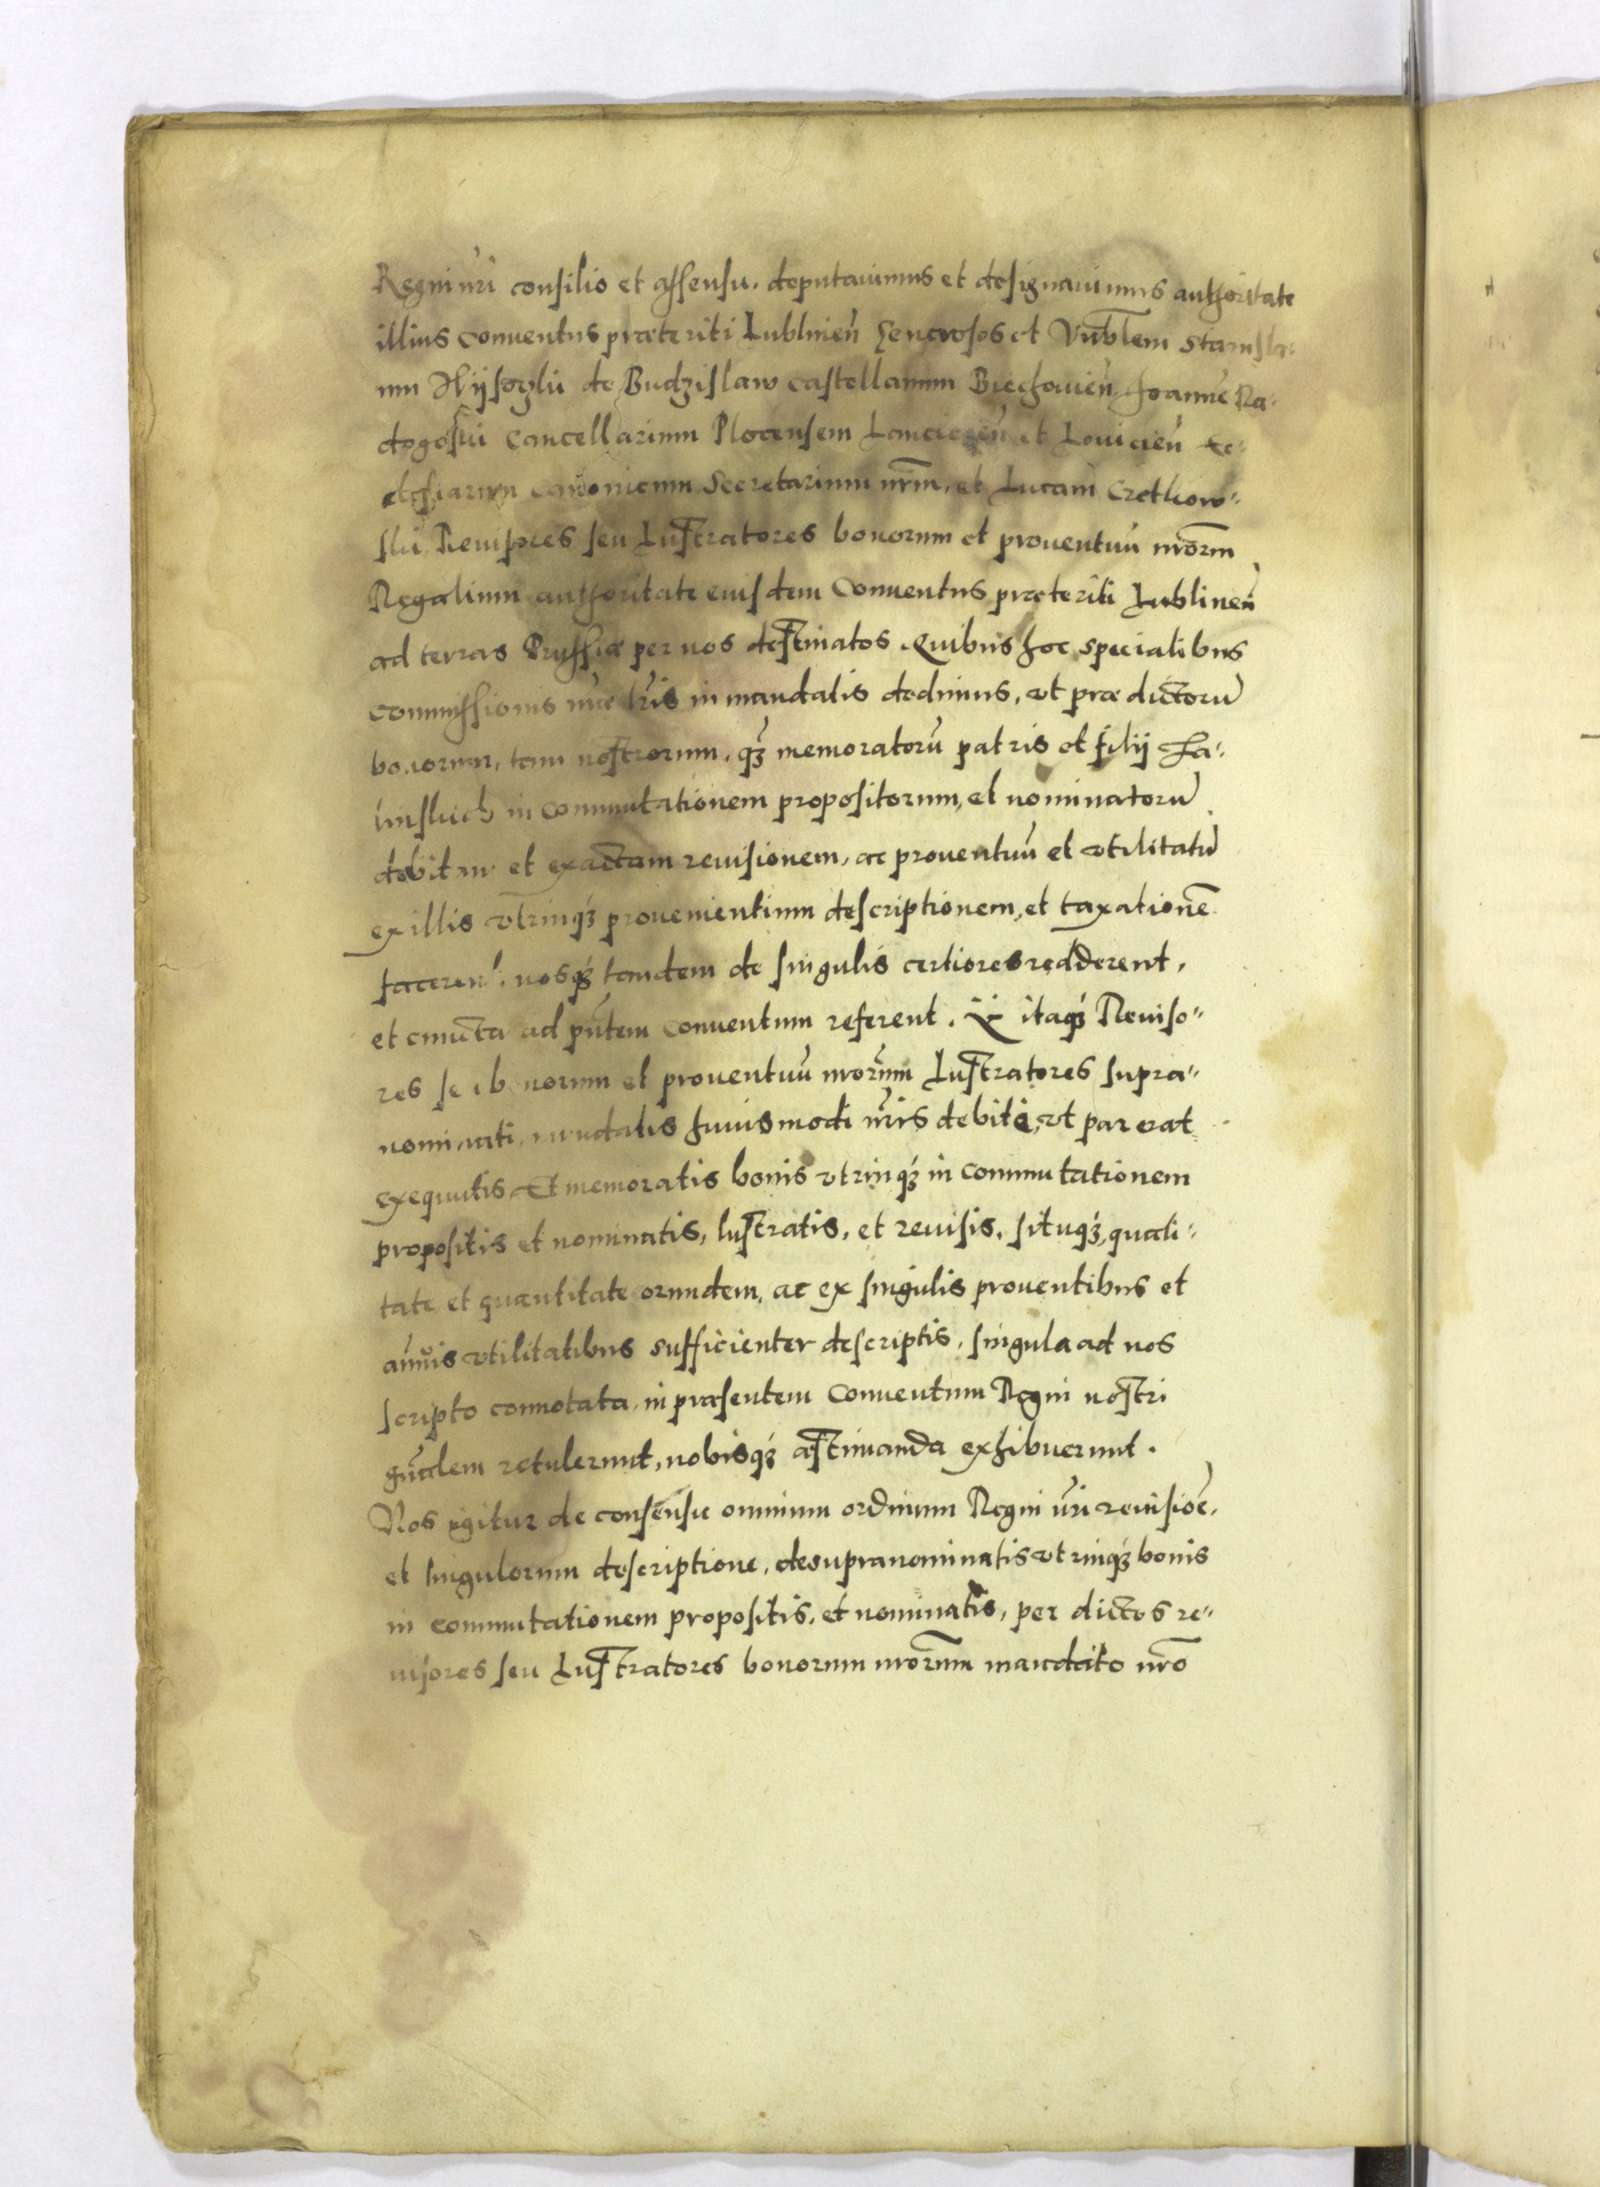 Regni nr̃i consilio et assensu. deputauimus et designauimus authoritate
illius Conuentus præteriti Lublineñ Generosos et Vnb̃lem Stanisla-
um Wijsoczkı̃ de Budzislaw Castellanum Biechouieñ Joannẽ Ra-
dogoskı̃ Cancellarium Plocensem Lancicieñ et Louicieñ Ec-
clesiarum Canonicum Secretarium nr̃m, et Lucam
Reuisores seu Lustratores bonorum et prouentuũ nrõrm
Regalium authoritate eiusdem Conuentus præteriti Lublineñ
ad terras Prussiæ per nos destinatos. Quibus hoc specialibus
commissionis nr̃æ lr̃is in mandatis dedimus, vt prædictorũ
bonorum, tam nostrorum, qz̃ memoratorũ patris et filij La-
linskich in commutationem propositorum, et nominatorũ
debitam et exactam reuisionem, ac prouentuũ et vtilitatũ
ex illis vtrinqź prouenientium descriptionem, et taxationẽ
facerent. nosqź tandem de singulis certiores redderent,
et cuncta ad pñtem Conuentum referent. Ijs itaqź Reuiso-
res seu bonorum et prouentuũ nrõrum Lustratores supra-
nominati, mandatis huiusmodi nr̃is debite, vt par erat
exequutis, Et memoratis bonis vtrinqź in commutationem
propositis et nominatis, lustratis, et reuisis, situqź, quali-
tate et quantitate eorundem, ac ex singulis prouentibus et
añuis vtilitatibus sufficienter descriptis, singula ad nos
scripto connotata, in præsentem Conuentum Regni nostri
gñalem retulerunt, nobisqź æstimanda exhibuerunt.
Nos igitur de consensu omnium ordinum Regni nr̃i reuisiõe,
et singulorum descriptione, de supranominatis vtrinqź bonis
in commutationem propositis, et nominatis, per dictos re-
uisores seu Lustratores bonorum nrõrum mandato nrõ